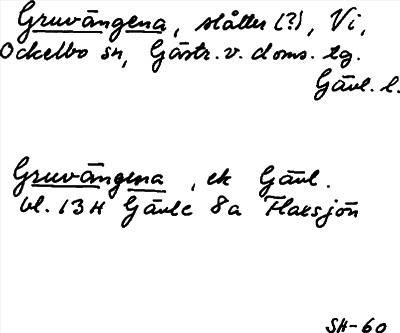 Gruvängena, slåtter (?), Vi,
Ockelbo sn, Gästr. v. doms. tg.
Gävl. l.
Gruvängena, ek Gävl.
bl. 13H Gävle 8a Flaesjön
SH-60